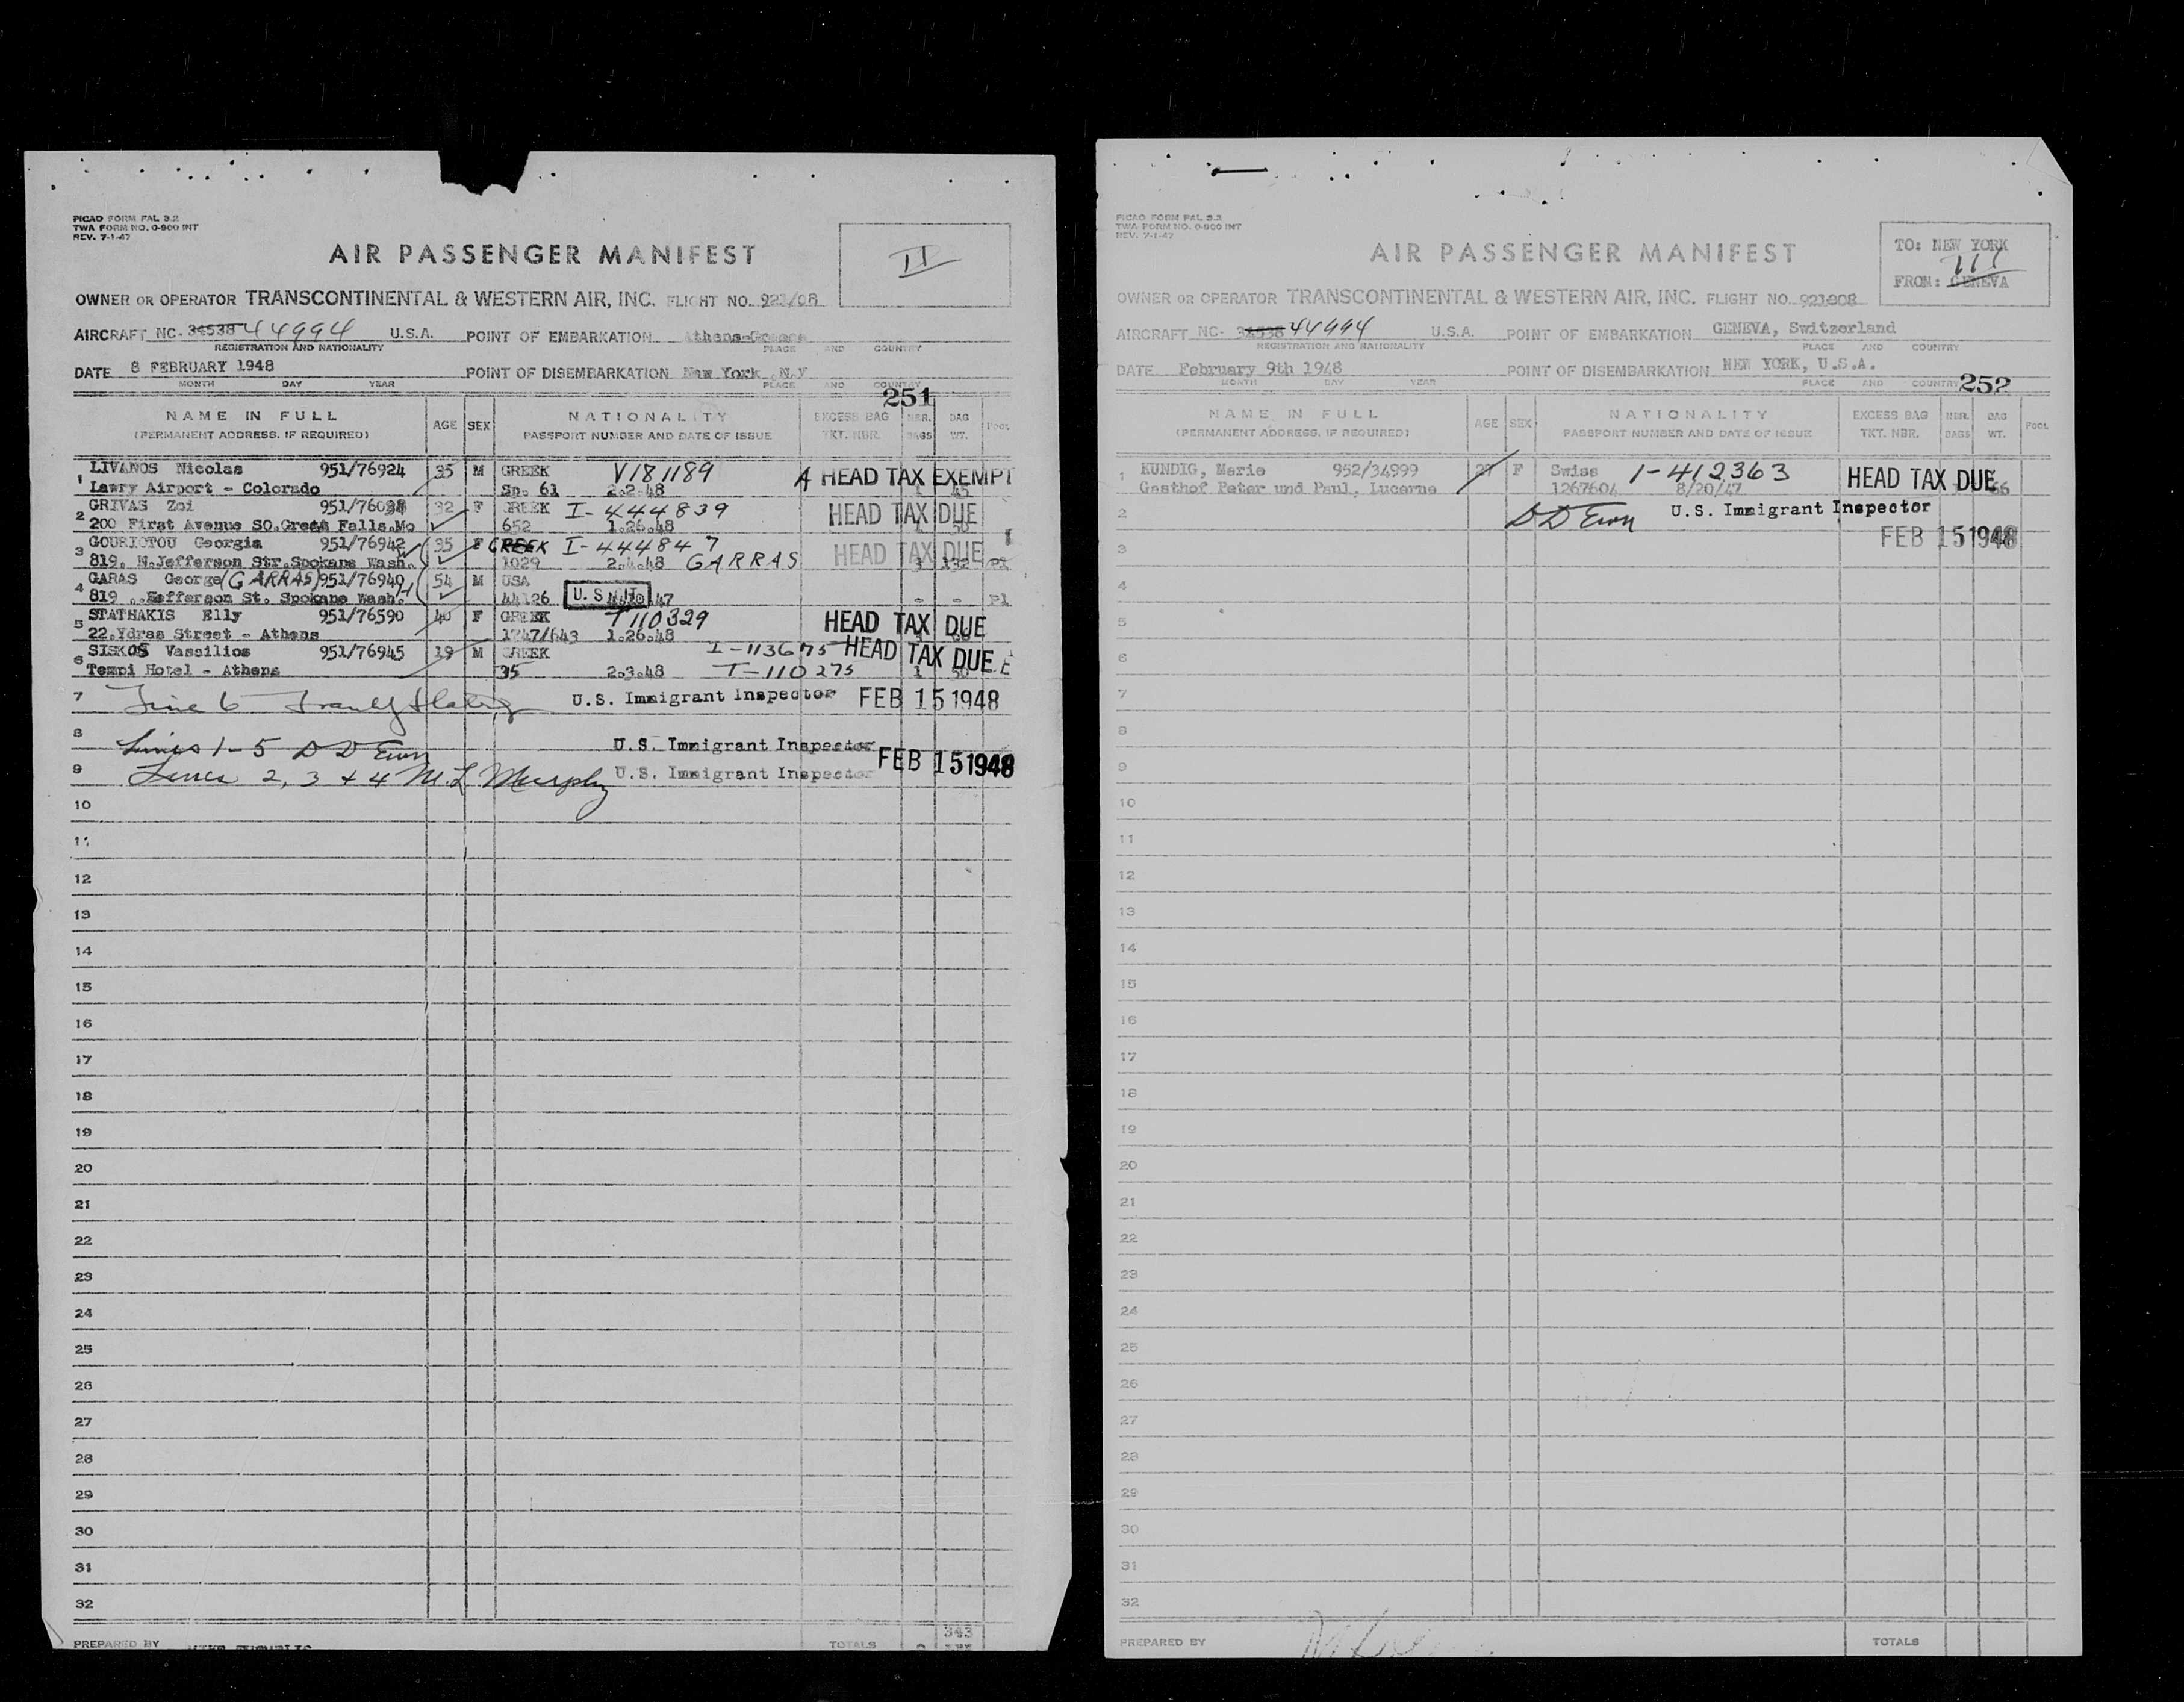 PICAO FORM PAL 3.2
TWA FORM NO. O-900 INT
REV. 7-1-47
AIR PASSENGER MANIFEST
II
OWNER OR OPERATOR TRANSCONTINENTAL & WESTERN AIR, INC. FLIGHT NO. 923/08
AIRCRAFT NC- 34538 44994 U.S.A. POINT OF EMBARKATION Athens-Greece
REGISTRATION AND NATIONALITY PLACE AND COUNTRY
DATE 8 FEBRUARY 1948 POINT OF DISEMBARKATION New York, N.Y
MONTH DAY YEAR PLACE AND COUNTRY
251
NAME IN FULL AGE SEX NATIONALITY EXCESS BAG NBR. BAG POOL
(PERMANENT ADDRESS, IF REQUIRED) PASSPORT NUMBER AND DATE OF ISSUE TKT. NBR. BAGS WT.
1 LIVANOS Nicolas 951/76924 35 M GREEK V181189 A HEAD TAX EXEMPT
Lawry Airport - Colorado Sp. 61 2.2.48 45
2 GRIVAS Zoi 32 F GREEK I-444839 HEAD TAX DUE
200 First Avenue SO.Great Falls.Mo 652 1.26.48 50
3 GOURIOTOU Georgia 951/76942 35 F GREEK I-444847 HEAD TAX DUE
819. N.Jefferson Str.Spokane Wash. 1029 2.4.48 GARRAS 3 132 Pl
4 GARAS George (GARRAS) 951/76940 54 M USA
819 .Jefferson St. Spokane Wash. 44126 U.S. 47 - - Pl
5 STATHAKIS Elly 951/76590 40 F GREEK T110329 HEAD TAX DUE
22.Ydras Street - Athens 1747/643 1.26.48
6 SISKOS Vassilios 951/76945 19 M GREEK I-113675 HEAD TAX DUE
Tempi Hotel - Athens 35 2.3.48 T-110275 1 50
7 Line 6 U.S. Immigrant Inspector FEB 15 1948
8 Lines 1-5 D D U.S. Immigrant Inspector FEB 15 1948
9 Lines 2, 3 + 4 M. L Murphy U.S. Immigrant Inspector
10
11
12
13
14
15
16
17
18
19
20
21
22
23
24
25
26
27
28
29
30
31
32
343
PREPARED BY TOTALS
PICAO FORM PAL 3.2
TWA FORM NO. O-900 INT
REV. 7-1-47
AIR PASSENGER MANIFEST
TO: NEW YORK
III
FROM: GENEVA
OWNER OR OPERATOR TRANSCONTINENTAL & WESTERN AIR, INC. FLIGHT NO. 923008
AIRCRAFT NC- 34538 44994 U.S.A. POINT OF EMBARKATION GENEVA, Switzerland
REGISTRATION AND NATIONALITY PLACE AND COUNTRY
DATE February 9th 1948 POINT OF DISEMBARKATION NEW YORK, U.S.A.
MONTH DAY YEAR PLACE AND COUNTRY
252
NAME IN FULL AGE SEX NATIONALITY EXCESS BAG NBR. BAG POOL
(PERMANENT ADDRESS, IF REQUIRED) PASSPORT NUMBER AND DATE OF ISSUE TKT. NBR. BAGS WT.
1 KUNDIG, Marie 952/34999 27 F Swiss I-412363 HEAD TAX DUE 66
Gasthof Peter und Paul, Lucerne 1267604 8/20/47
2 D D U.S. Immigrant Inspector
3 FEB 15 1948
4
5
6
7
8
9
10
11
12
13
14
15
16
17
18
19
20
21
22
23
24
25
26
27
28
29
30
31
32
PREPARED BY TOTALS